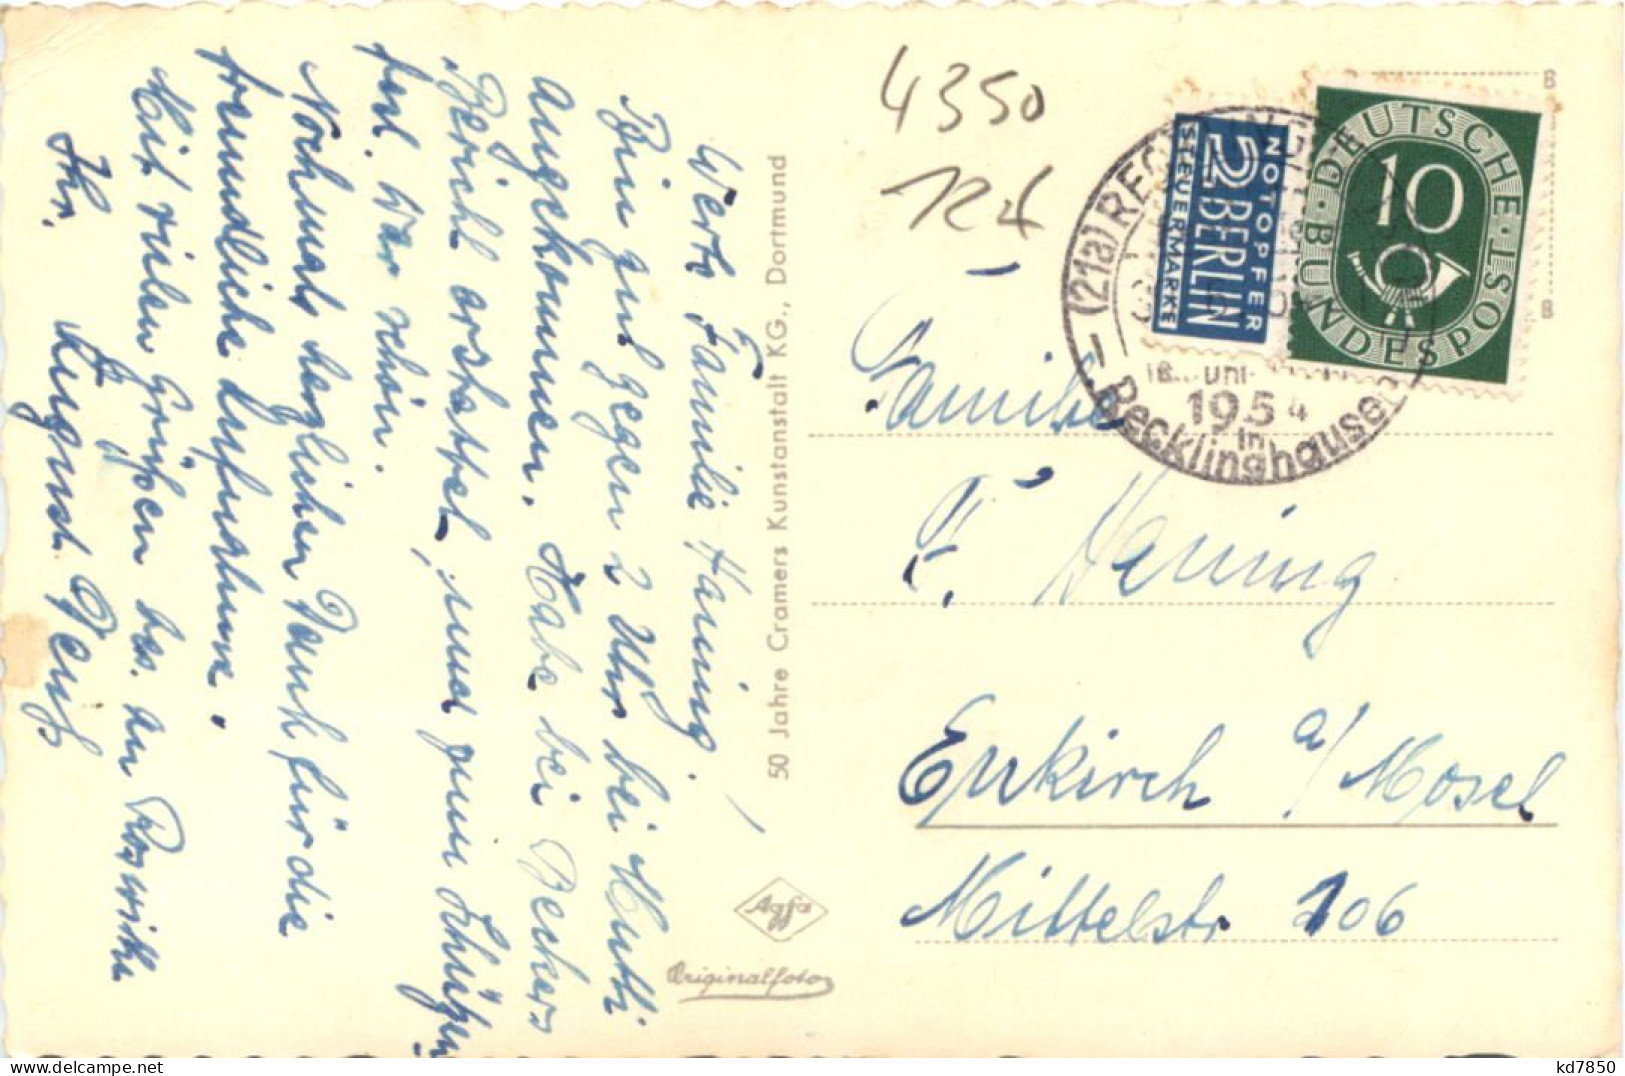 Werte Familie Haning.
Bin gut gegen 2 Uhr bei Mutti
angekommen. Habe bei Beckers
Bericht erstattet, und zum
fest. War schön.
Nochmals herzlichen Dank für die
freundliche Aufnahme.
Mit vielen Grüßen bes. an Roswitha
Ihr. August
50 Jahre Cramers Kunstanstalt KG., Dortmund
Agfa
Originalfoto
4350
NOTOPFER
2 BERLIN
STEUERMARKE
DEUTSCHE BUNDESPOST
10
(21a) RECKLINGHAUSEN
1954
in
Recklinghausen
B
B
Familie
F. Haning
Enkirch a/Mosel
Mittelstr. 106
kd7850